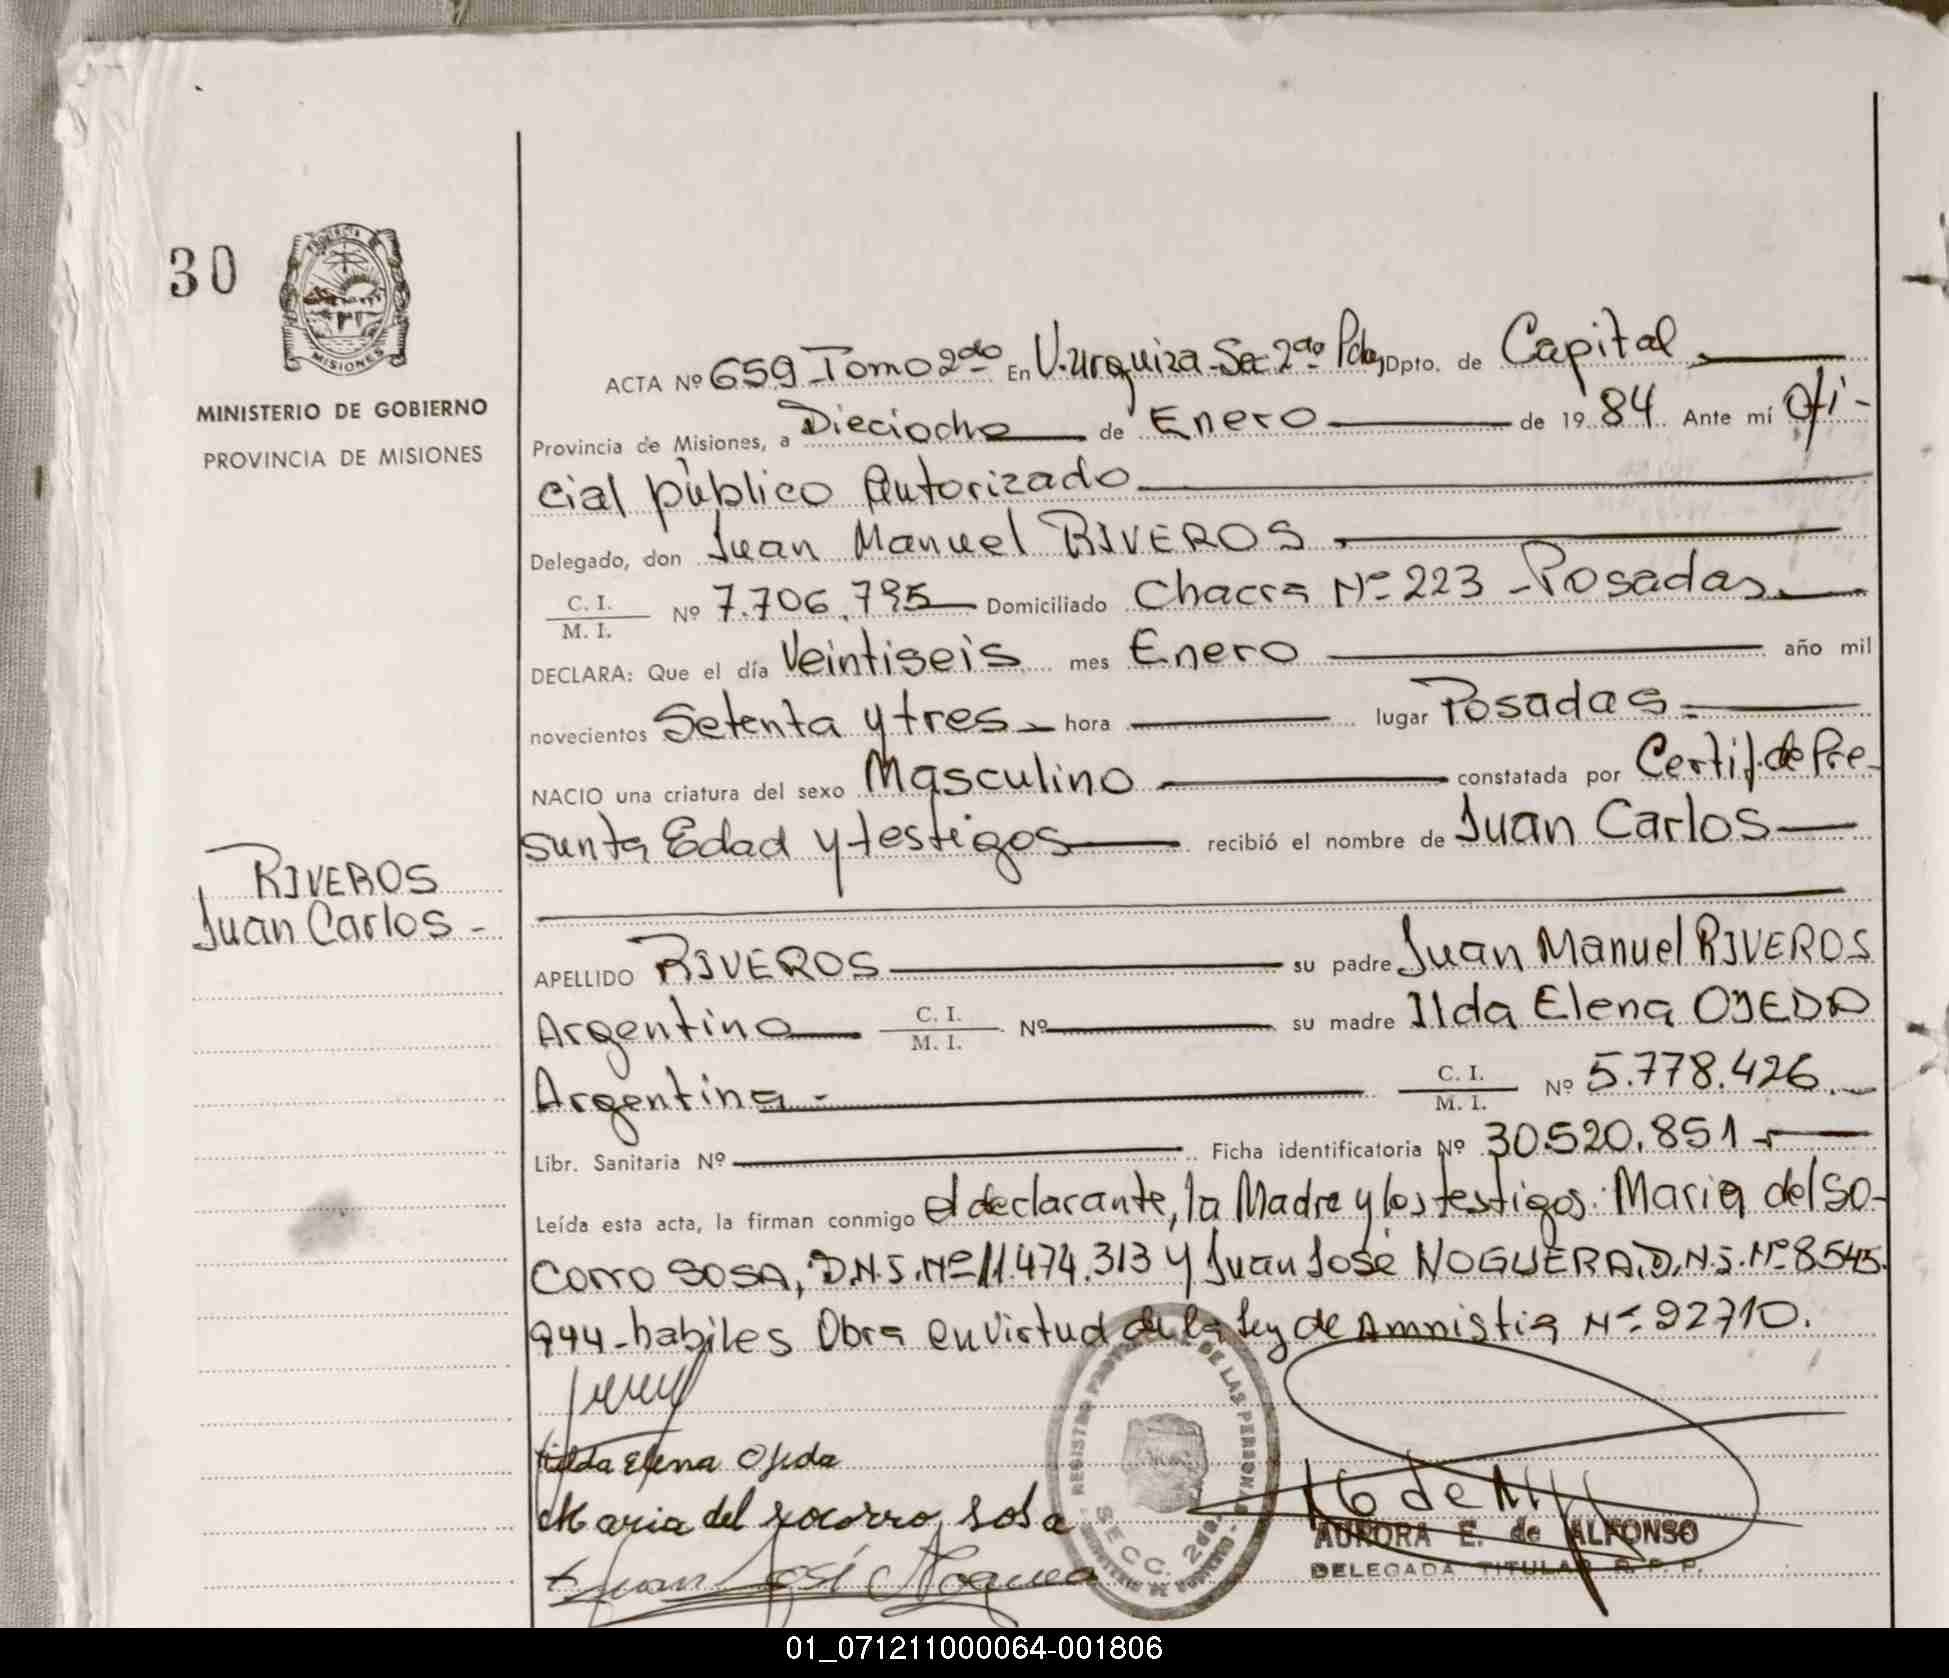 30
PROVINCIA DE
MISIONES
MINISTERIO DE GOBIERNO
PROVINCIA DE MISIONES
RIVEROS
Juan Carlos -
ACTA Nº 659 Tomo 2do En V. Urquiza Sec 2da Pdas, Dpto. de Capital
Provincia de Misiones, a Dieciocho de Enero de 19 84 Ante mí Ofi-
cial público Autorizado
Delegado, don Juan Manuel RIVEROS
C. I. / M. I. Nº 7.706.795 Domiciliado Chacra Nº 223 - Posadas
DECLARA: Que el día Veintiseis mes Enero año mil
novecientos Setenta y tres hora lugar Posadas
NACIO una criatura del sexo Masculino constatada por Certif. de Pre-
sunta Edad y testigos recibió el nombre de Juan Carlos
APELLIDO RIVEROS su padre Juan Manuel RIVEROS
Argentino C. I. / M. I. Nº su madre Ilda Elena OJEDA
Argentina - C. I. / M. I. Nº 5.778.426
Libr. Sanitaria Nº Ficha identificatoria Nº 30.520.851
Leída esta acta, la firman conmigo el declarante, la Madre y los testigos: Maria del So-
corro SOSA, D.N.I. Nº 11.474.313 y Juan José NOGUERA, D.N.I. Nº 8.545.
944 - habiles Obra en virtud de la Ley de Amnistia Nº 22710.
Hilda Elena Ojeda
Maria del socorro sosa
Juan José Noguera
REGISTRO DE LAS PERSONAS
SECC. 2da.
AURORA E. de ALFONSO
DELEGADA TITULAR R. P. P.
01_071211000064-001806